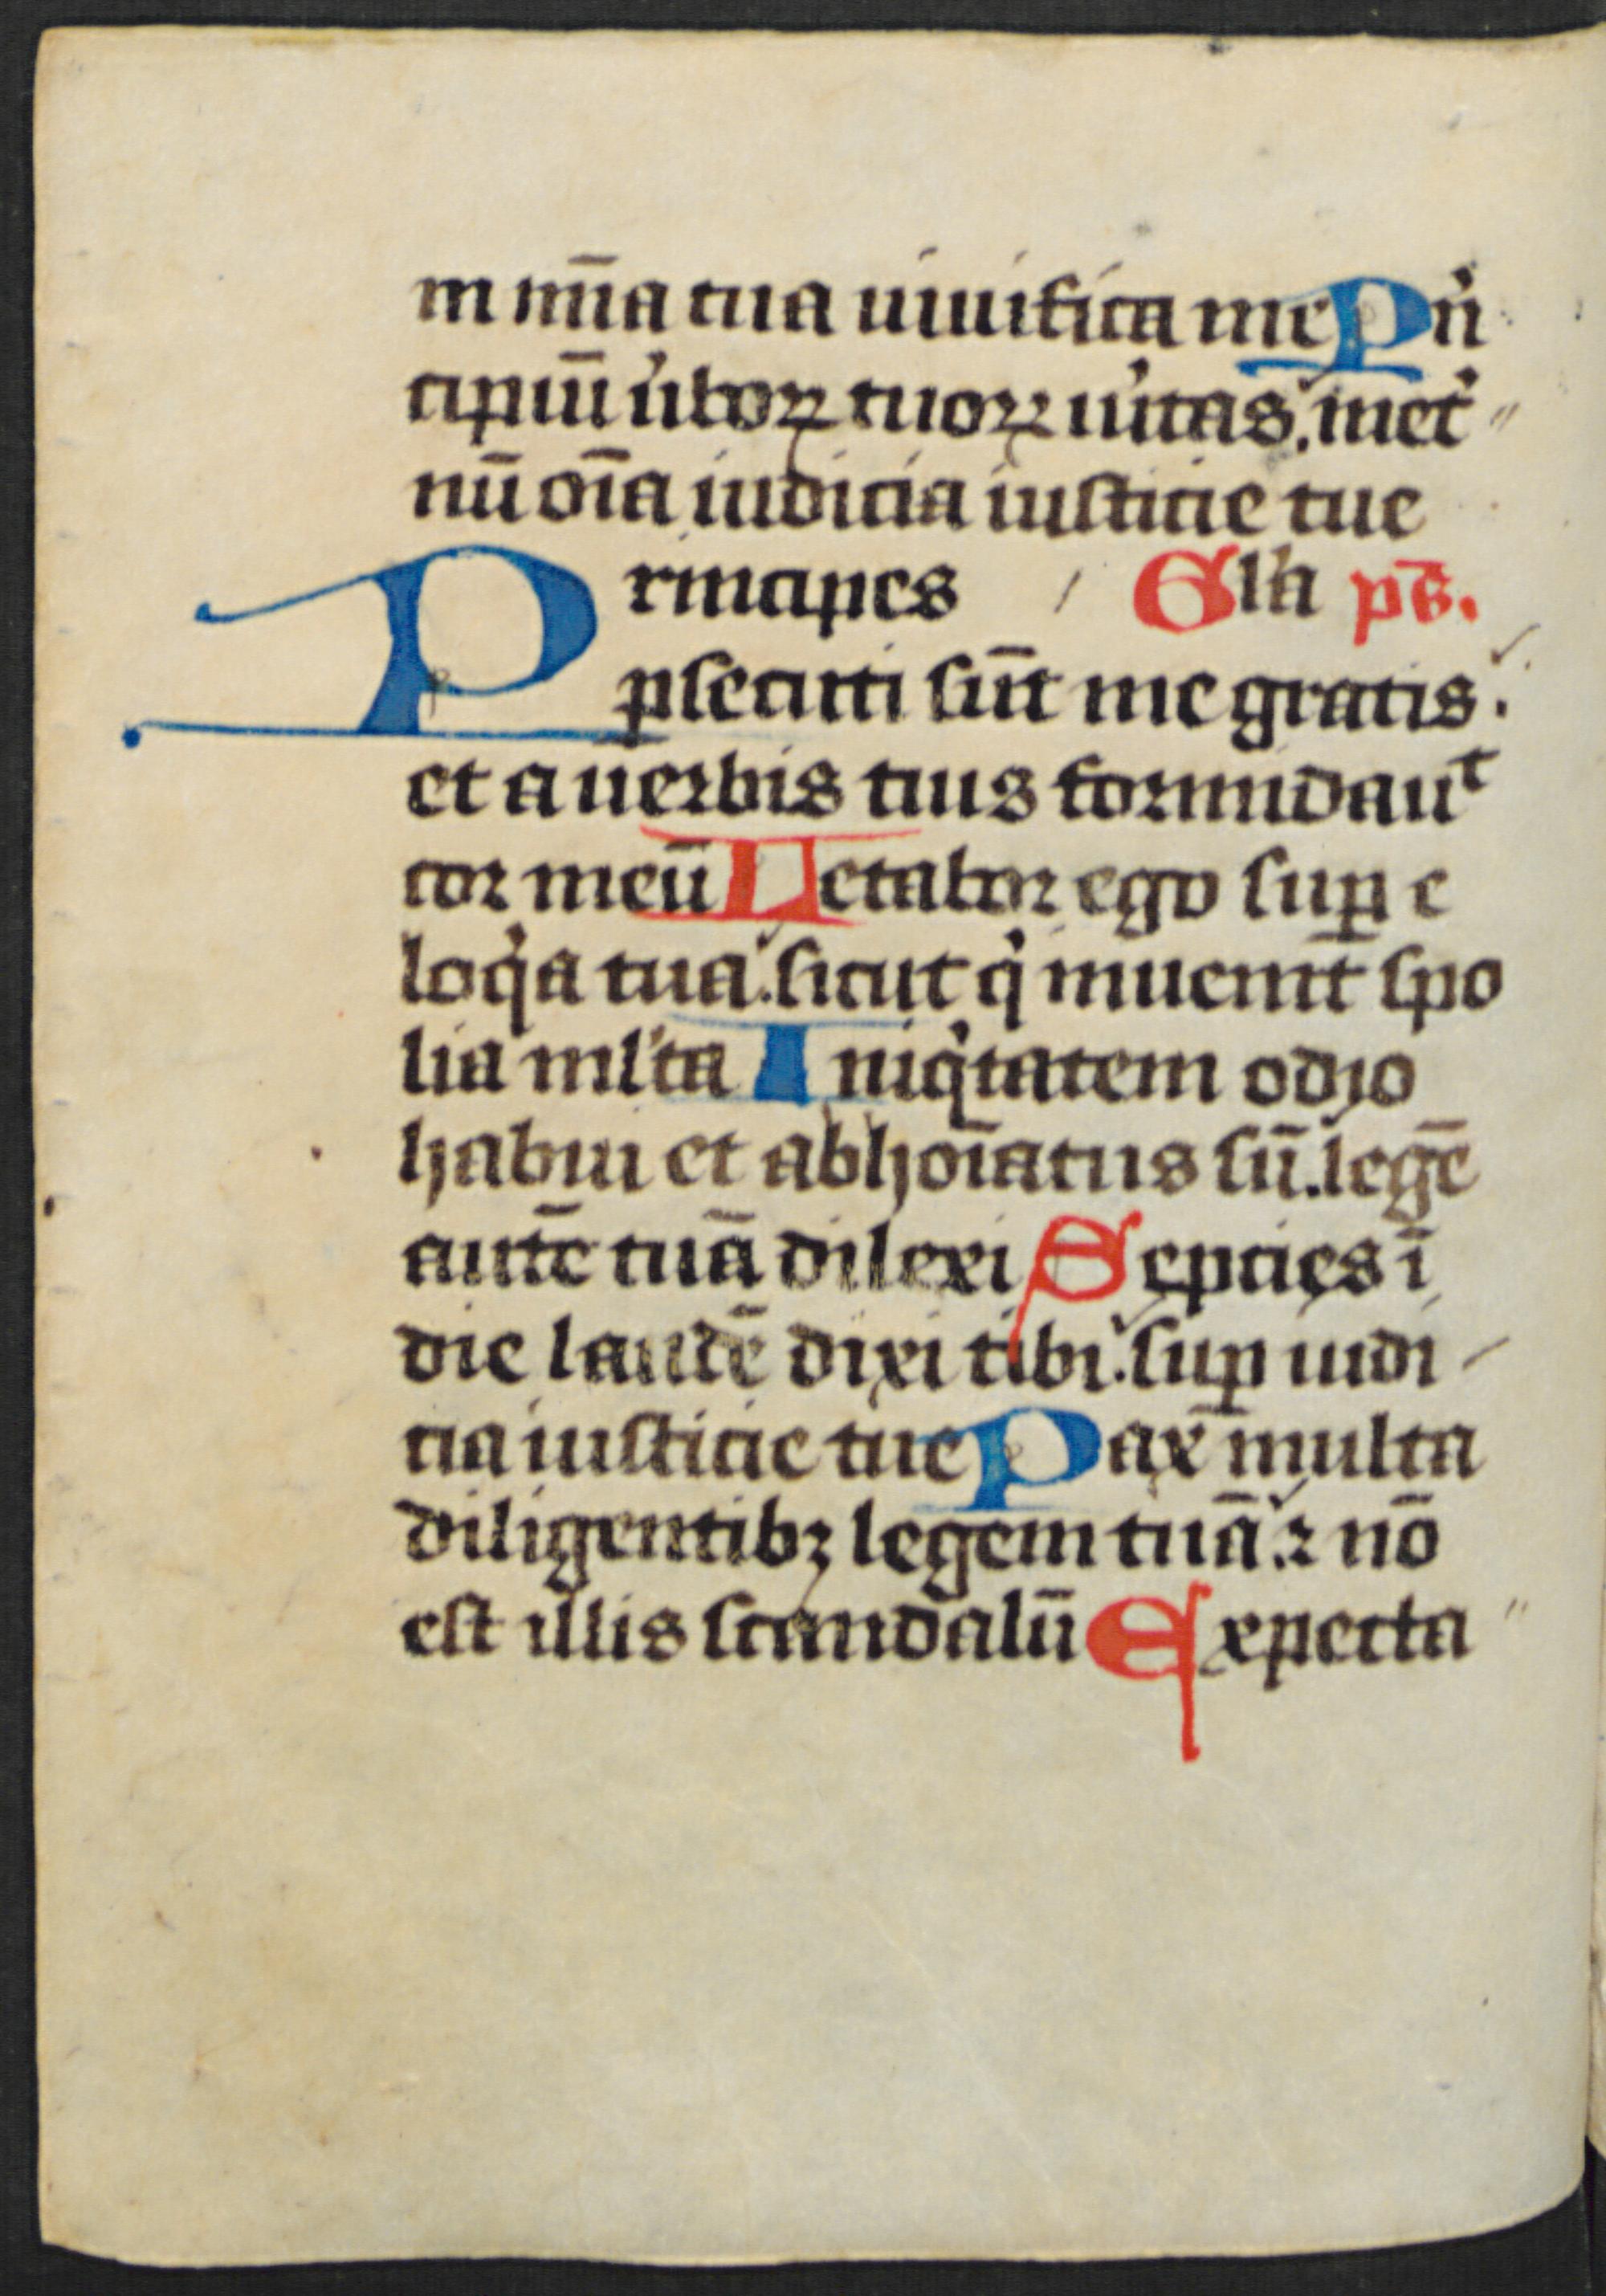 in mīa tua uiuifica me Pn̾
cipiū u̾boꝝ tuoꝝ u̾itas. inet̾
nū oīa iudicia iusticie tue
Principes Gl̾ia ps̄.
ꝑsecuti sūt me gratis.
et a uerbis tuis formidauͭ
cor meū Letabor ego suꝑ e
loq̾a tua. sicut q̾ inuenit̄ spo
lia ml̾ta Iniq̾tatem odio
habui et abhoīatus sū. legē
autē tuā dilexi Septies ī
die laudē dixi tibi. suꝑ iudi
cia iusticie tue Pax multa
diligentibꝫ legem tuā. ⁊ nō
est illis scandalū Expecta